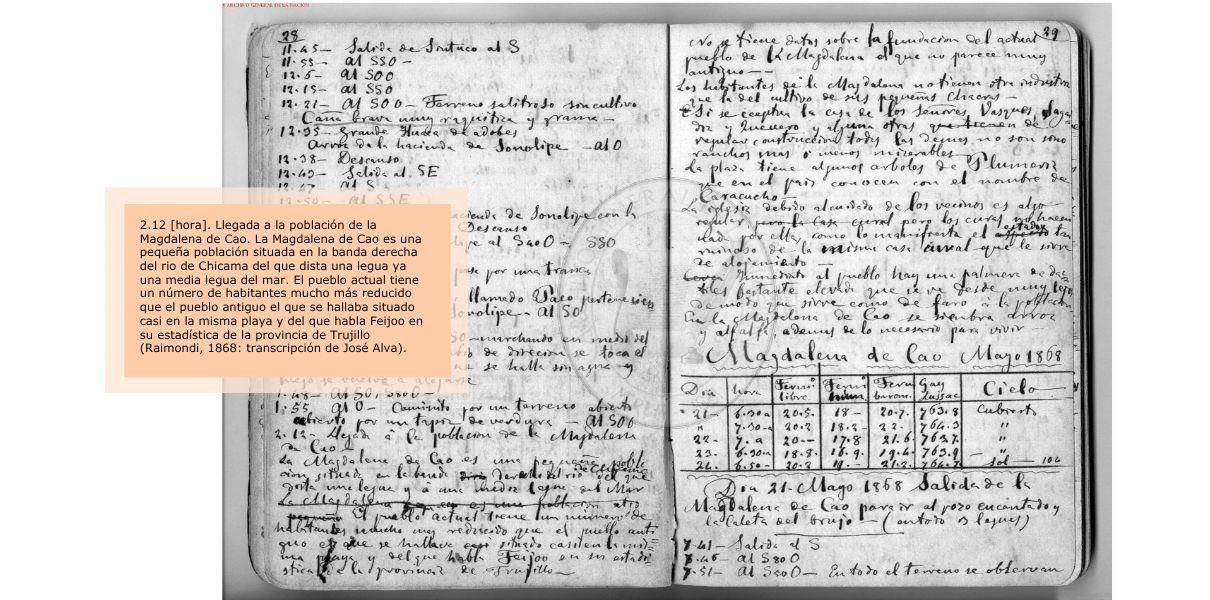 ARCHIVO GENERAL DE LA NACION
28
11.45 — Salida de Sintuco al S
11.53 — al SSO —
12.6 — al SOO
12.15 — al SSO
12.21 — al SOO — Terreno salitroso sin cultivo
Caña brava muy raquitica y grama —
12.35 — grande Huaca de adobes
Arroz de la hacienda de Sonolipe — al O
12.38 — Descanso
12.43 — Salida al SE
12.47 al S
al SSE
cienda de Sonolipe con la
Descanso
lipe al S40O — SSO
por una tranca
llamado Paco pertenece
Sonolipe — al SO
— marchando en medio del
de direccion se toca el
se halla sin agua y
luego se vuelve a alejarse
1.48 — al SO, S80O —
1.55 al O — Caminito por un terreno abierto
cubierto por un tapiz de verdura — al SOO
2.12 — Llegada á la poblacion de la Magdalena
de Cao —
La Magdalena de Cao es una pequeña pobla
cion situada en la banda derecha del rio de Chicama del que
dista una legua y á una media legua del Mar
La Magdalena
El pueblo actual tiene un número de
habitantes mucho mas reducido que el pueblo anti
guo el que se hallaba casi situado casi en la mis
ma playa y del que habla Feijoo en su estadi
stica de la provincia de Trujillo —
2.12 [hora]. Llegada a la población de la
Magdalena de Cao. La Magdalena de Cao es una
pequeña población situada en la banda derecha
del rio de Chicama del que dista una legua ya
una media legua del mar. El pueblo actual tiene
un número de habitantes mucho más reducido
que el pueblo antiguo el que se hallaba situado
casi en la misma playa y del que habla Feijoo en
su estadística de la provincia de Trujillo
(Raimondi, 1868: transcripción de José Alva).
29
No se tiene datos sobre la fundacion del actual
pueblo de la Magdalena el que no parece muy
antiguo —
Los habitantes de la Magdalena no tienen otra industria
que la del cultivo de sus pequeñas chacras —
Si se eceptua la casa de los Señores Vasques,
y Quevero y alguna otras que tienen de
regular construccion todas las demas no son sino
ranchos mas o menos miserables —
La plaza tiene algunos arboles de Plumeria
que en el pais conocen con el nombre de
Caracucho —
La iglesia debido al cuidado de los vecinos es algo
regular pero los curas no hacen
nada por ellas como lo manifiesta el estado
ruinoso de la misma casa cural que le sirve
de alojamiento —
Inmediato al pueblo hay una palmera de da
tiles bastante elevada que se ve desde muy lejos
de modo que sirve como de faro á la poblacion
En la Magdalena de Cao se siembra arroz
y alfalfa, ademas de lo necesario para vivir —
Magdalena de Cao Mayo 1868
Dia hora Termo libre Termo hum. Term barom. Gay Lussac Cielo
21 — 6.30 a 20.5. 18 — 20.7. 763.8 Cubierto
" 7.30 a 20.2 18.2 — 22. 764.3 "
22 — 7. a 20 — 17.8 21.6 763.7. "
23 — 6.30 a 18.8. 16.9. 19.4 763.9 — "
24. 6.50 — 20.2 19. — 21.2. 764.2 Sol — 104
Dia 21 Mayo 1868 Salida de la
Magdalena de Cao para ir al pozo encantado y
la Caleta del brujo — (en todo 3 leguas)
7.41 — Salida al S
7.46 — al S80O
7.51 — al S50O — En todo el terreno se observan